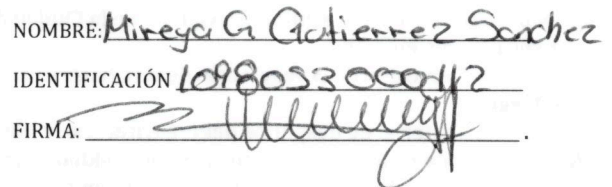 NOMBRE: Mireya G Gutierrez Sanchez
IDENTIFICACIÓN 1098053000412
FIRMA: .